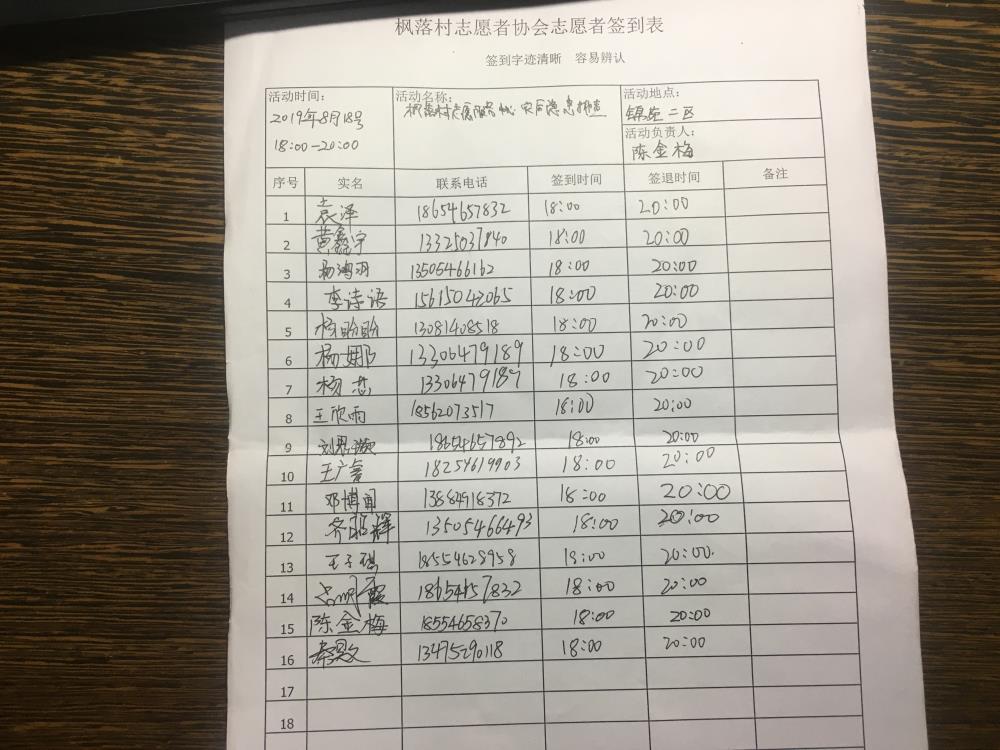 枫落村志愿者协会志愿者签到表
签到字迹清晰 容易辨认
活动时间： 活动名称： 活动地点：
2019年8月18号 枫落村志愿服务 灾后隐患排查 锦苑二区
18:00-20:00 活动负责人：
陈金梅
序号 实名 联系电话 签到时间 签退时间 备注
1 袁泽 18654657832 18:00 20:00
2 黄鑫宇 13325037840 18:00 20:00
3 杨鸿羽 13505466162 18:00 20:00
4 李诗语 15615042065 18:00 20:00
5 杨盼盼 13081408518 18:00 20:00
6 杨娜 13306479189 18:00 20:00
7 杨 13306479189 18:00 20:00
8 王欣雨 18562073517 18:00 20:00
9 18654657892 18:00 20:00
10 王广 18254619903 18:00 20:00
11 邓博闻 13884918372 18:00 20:00
12 齐 辉 13505466493 18:00 20:00
13 王子琪 18554628958 18:00 20:00
14 18654657832 18:00 20:00
15 陈金梅 18554658370 18:00 20:00
16 13475290118 18:00 20:00
17
18